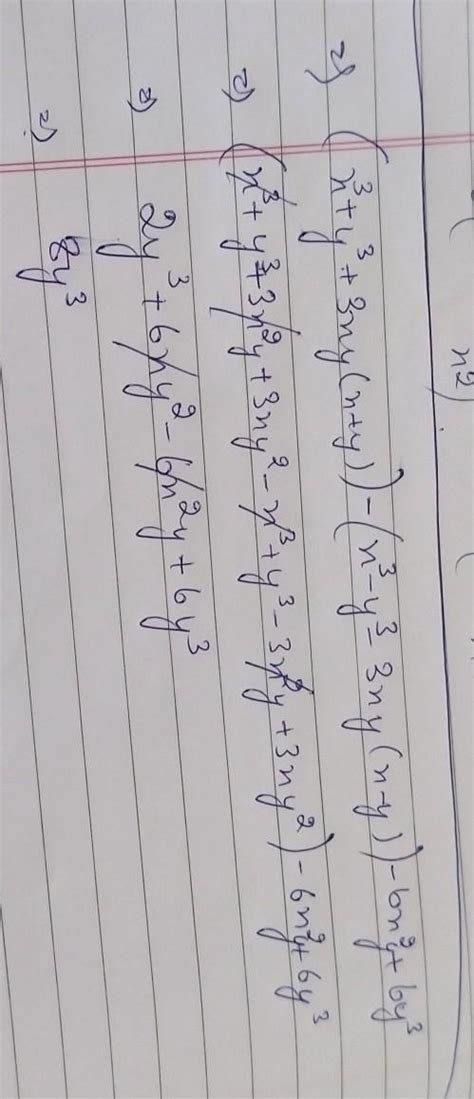 x²)
=) (x³+y³+3xy(x+y))-(x³-y³-3xy(x-y))-6x²y+6y³
=) (x³+y³+3x²y+3xy²-x³+y³-3x²y+3xy²)-6x²y+6y³
=) 2y³+6xy²-6x²y+6y³
=) 8y³